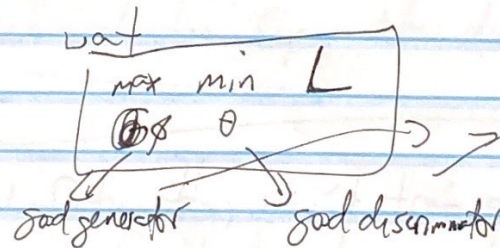 want
max min L
φ θ
good generator good discriminator